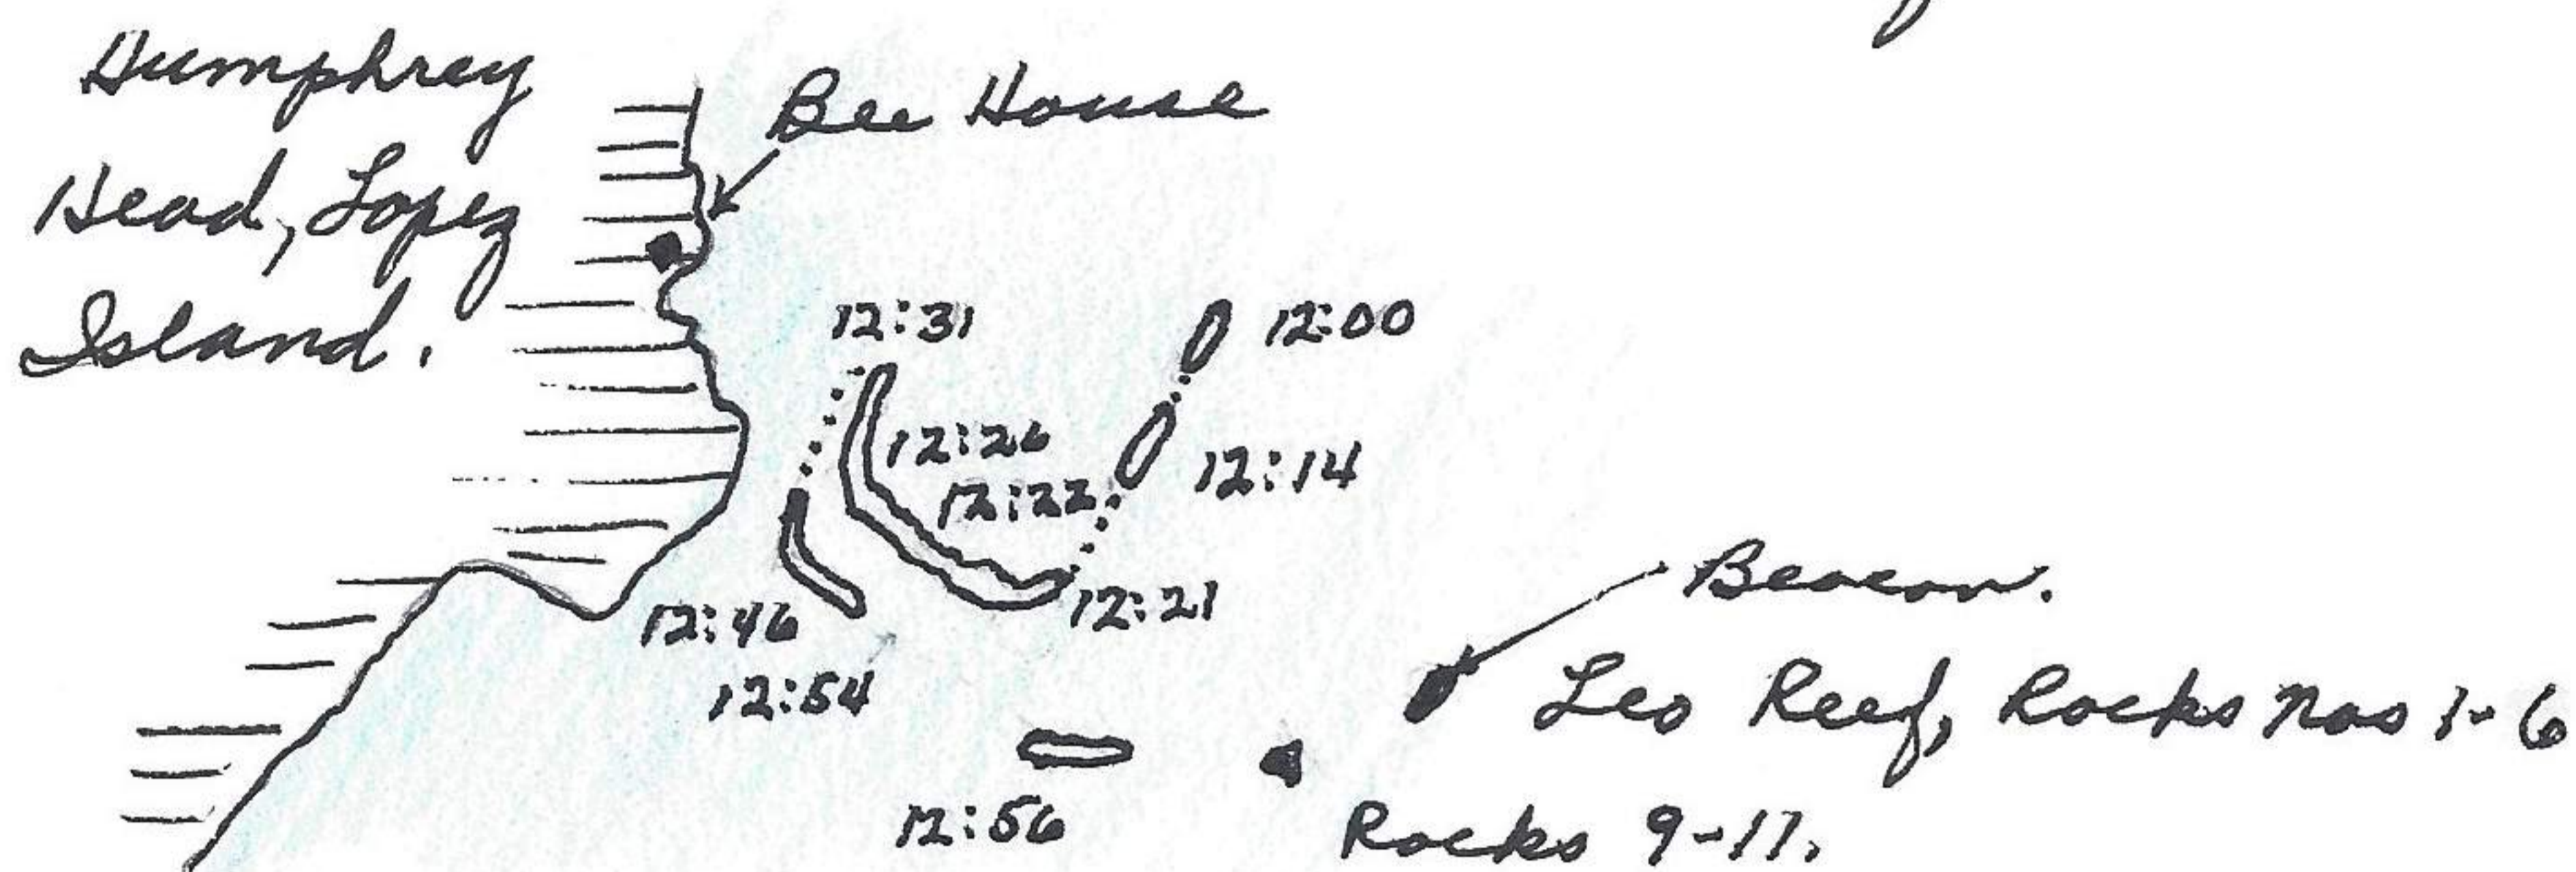 Humphrey
Head, Lopez
Island.
Bee House
12:31
12:00
12:26
12:22
12:14
12:21
12:46
12:54
12:56
Beacon.
Leo Reef, Rocks Nos 1-6
Rocks 9-11.